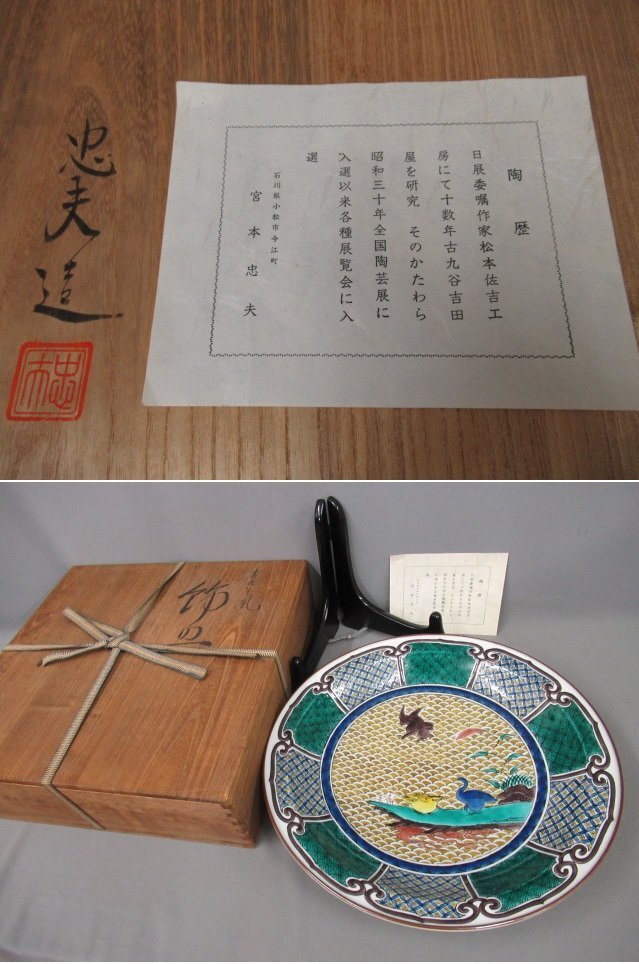 忠夫造
忠
陶歴
日展委嘱作家松本佐吉工
房にて十数年古九谷吉田
屋を研究 そのかたわら
昭和三十年全国陶芸展に
入選以来各種展覧会に入
選
石川県小松市今江町
宮本忠夫
飾皿
陶歴